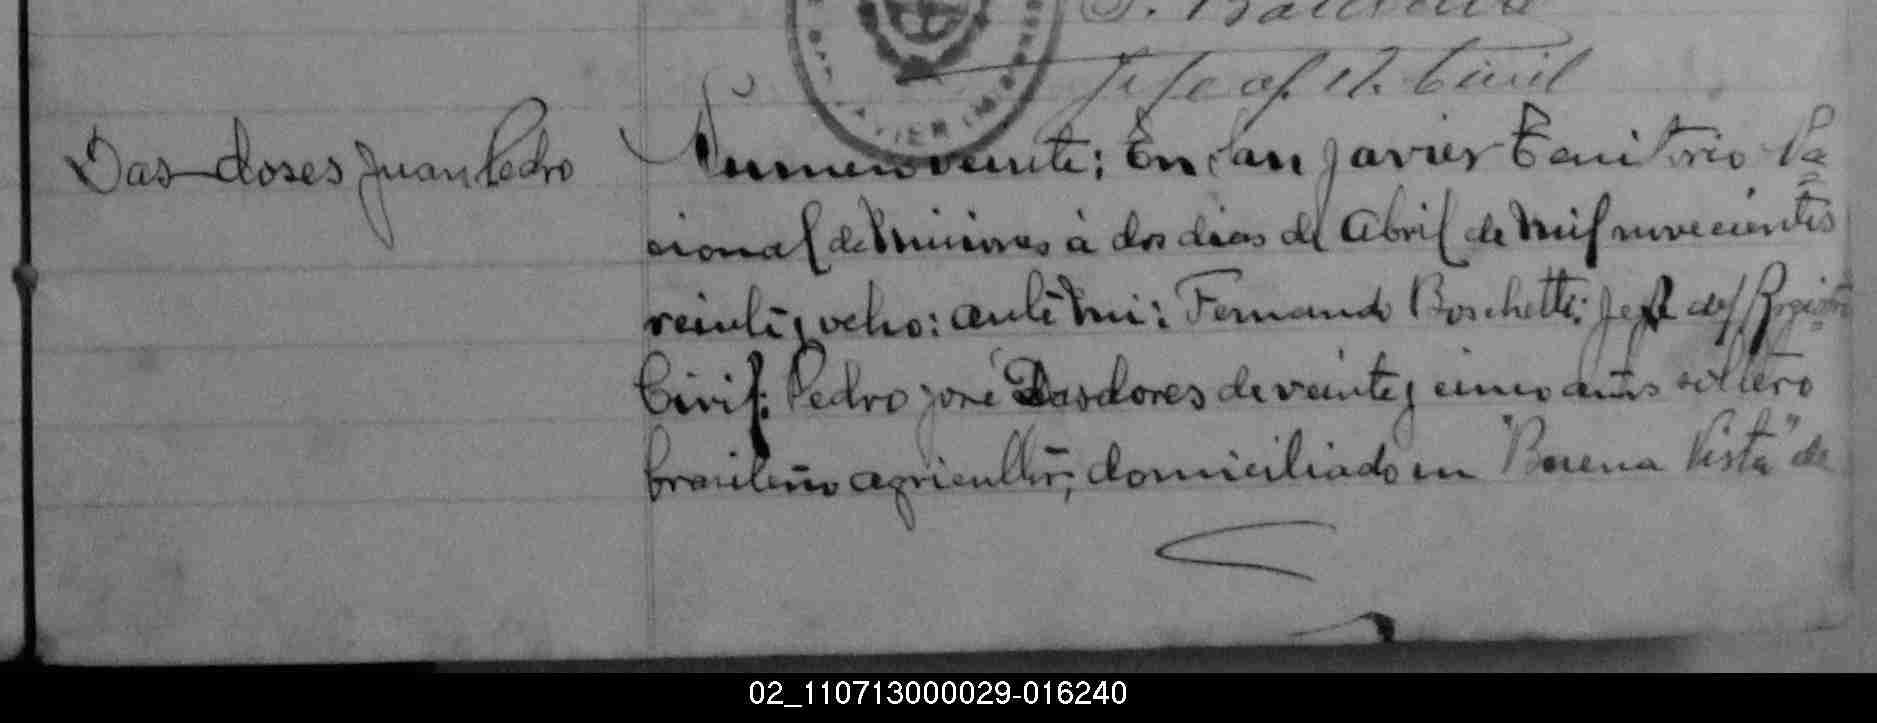 Jefe of. R. Civil
Das-doses Juan Pedro
Numero veinte: En San Javier Territorio Na
cional de Misiones à dos dias de Abril de mil novecientos
veinte y ocho: ante mi: Fernando Boschetti: Jefe del Registro
Civil: Pedro José Dasdores de veinte y cinco años soltero
brasileño agricultor, domiciliado en "Buena Vista" de
02_110713000029-016240